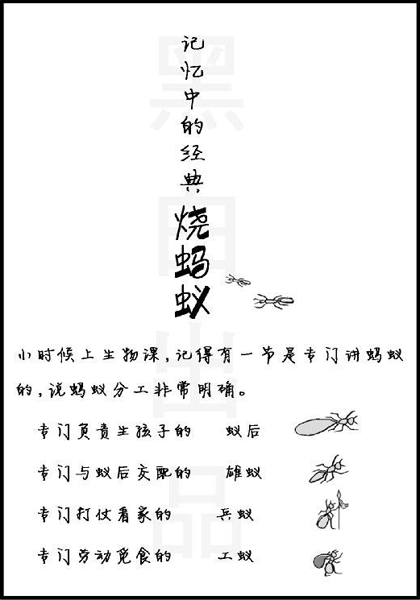 记忆中的经典
烧蚂蚁
小时候上生物课,记得有一节是专门讲蚂蚁
的,说蚂蚁分工非常明确。
专门负责生孩子的 蚁后
专门与蚁后交配的 雄蚁
专门打仗看家的 兵蚁
专门劳动觅食的 工蚁
黑白出品